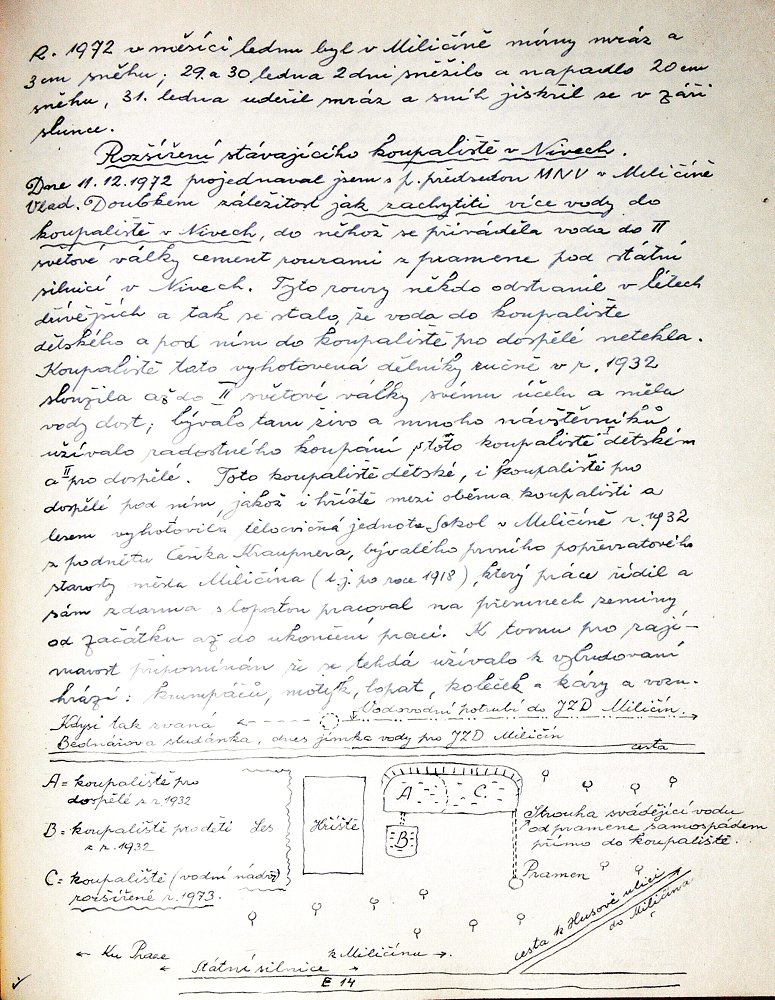 R. 1972 v měsíci lednu byl v Miličíně mírný mráz a
3 cm sněhu; 29. a 30. ledna 2 dni sněžilo a napadlo 20 cm
sněhu, 31. ledna udeřil mráz a sníh jiskřil se v záři
slunce.
Rozšíření stávajícího koupaliště v Nivech.
Dne 11.12.1972 projednával jsem s p. předsedou MNV v Miličíně
Vlad. Doubkem záležitost jak zachytiti více vody do
koupaliště v Nivech, do něhož se přiváděla voda do II
světové války cement. rourami z pramene pod státní
silnicí v Nivech. Tyto roury někdo odstranil v létech
dřívějších a tak se stalo, že voda do koupaliště
dětského a pod ním do koupaliště pro dospělé netekla.
Koupaliště tato vyhotovená dělníky ručně v r. 1932
sloužila až do II světové války svému účelu a měla
vody dost; bývalo tam živo a mnoho návštěvníků
užívalo radostného koupání, v koupališti I dětském
a II pro dospělé. Toto koupaliště dětské, i koupaliště pro
dospělé pod ním, jakož i hřiště mezi oběma koupališti a
lesem vyhotovila tělocvičná jednota Sokol v Miličíně r. 1932
z podnětu Čeňka Kraupnera, bývalého prvního popřevratového
starosty města Miličína (t.j. po roce 1918), který práce řídil a
sám zdarma s lopatou pracoval na přesunech zeminy
od začátku až do ukončení prací. K tomu pro zají-
mavost připomínám že se tehdá užívalo k vybudování
hrází: krumpáčů, motyk, lopat, koleček a káry a vozu.
Kdysi tak zvaná
Vodovodní potrubí do JZD Miličín.
Bednářova studánka, dnes jímka vody pro JZD Miličín
cesta
A = koupaliště pro
dospělé z r 1932
B = koupaliště pro děti
z r. 1932
C = koupaliště (vodní nádrž)
rozšířené r. 1973.
Les
Hřiště
A
C
B
Strouha svádějící vodu
od pramene samospádem
přímo do koupaliště.
Pramen
cesta k Husově ulici
do Miličína
← Ku Praze
k Miličínu →
← Státní silnice →
E 14